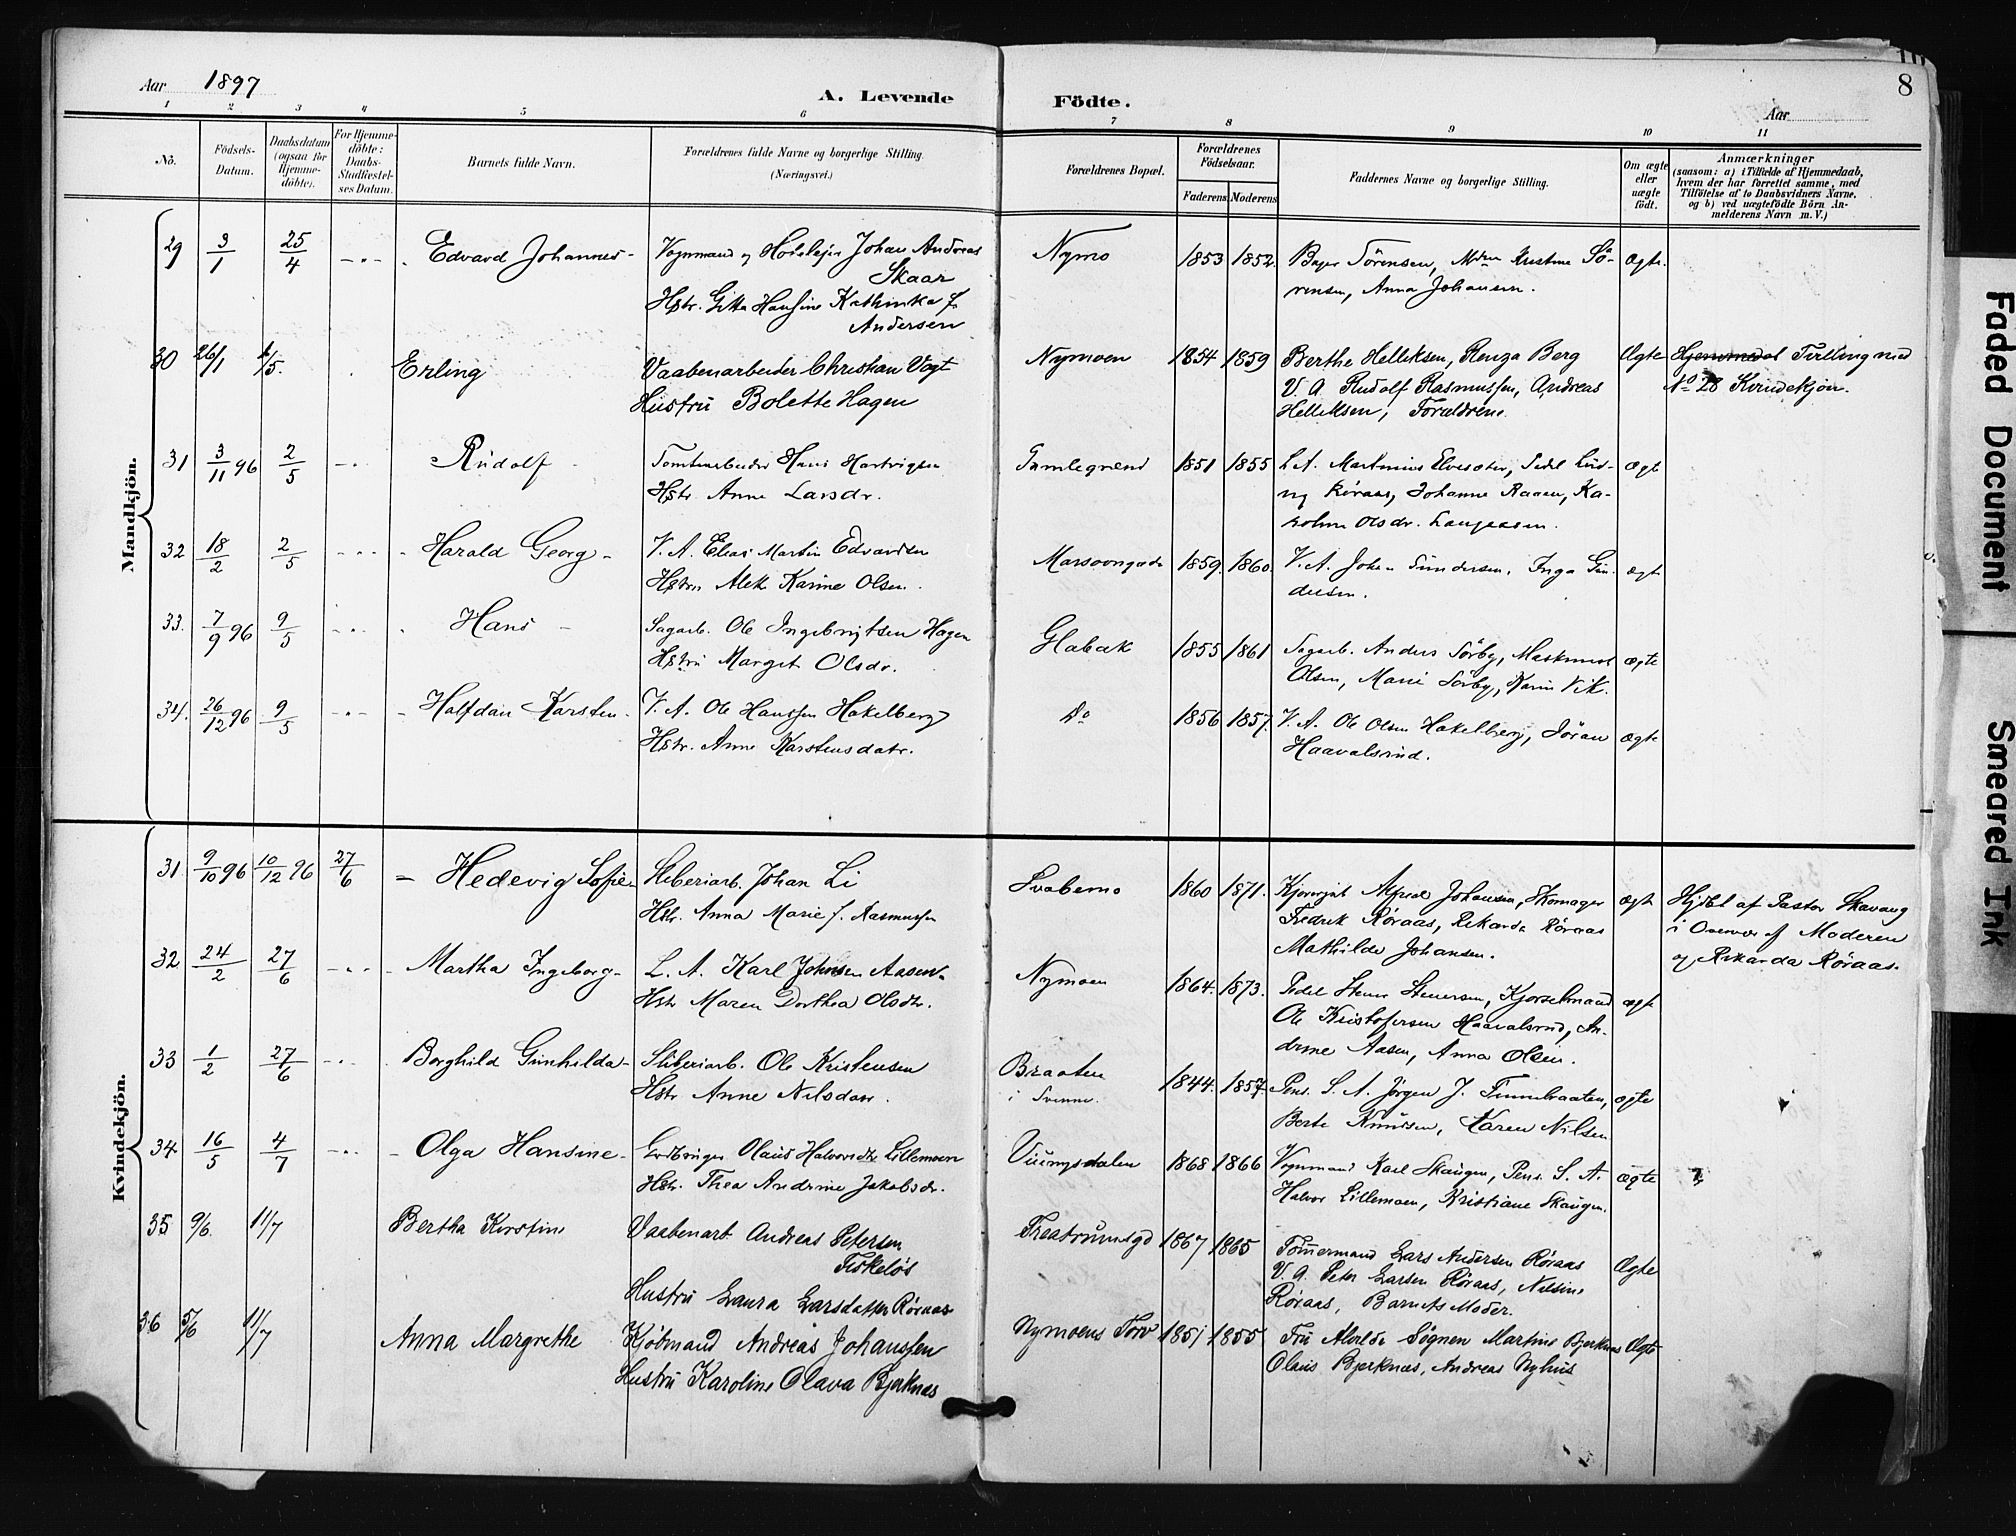 Aar 1897
A. Levende Födte.
Aar
8
1 2 3 4 5 6 7 8 9 10 11
No.
Födsels-Datum.
Daabsdatum (ogsaa for Hjemme-döbte).
For Hjemme-döbte: Daabs-Stadfæstel-ses Datum.
Barnets fulde Navn.
Forældrenes fulde Navne og borgerlige Stilling. (Næringsvei.)
Forældrenes Bopæl.
Forældrenes Födselsaar.
Faderens Moderens
Faddernes Navne og borgerlige Stilling.
Om ægte eller uægte födt.
Anmærkninger
(saasom: a) i Tilfælde af Hjemmedaab,
hvem der har forrettet samme, med
Tilföielse af to Daabsvidners Navne.
og b) ved uægtefödte Börn An-
melderens Navn m. V.)
Mandkjön.
29 3/1 25/4 - " - Edvard Johannes - Vognmand og Johan Andreas Nymo 1853 1852. Sörensen, Kristine Sö- Ægte
Skaar
rensen, Anna Johansen.
Hstr. Gitta Hansine Kathinka f.
Andersen
30 26/1 /5. Erling Vaabenarbeider Christian Vogt Nymoen 1854 1859 Berthe Helliksen, Renza Berg Ægte Tvilling med
Hustru Bolette Hagen V. A. Rudolf Rasmussen, Andreas No 28 Kvindekjøn.
Helliksen, Forældrene.
31 3/11 96 2/5 - " - Rudolf Tomtearbeider Hans Hartvigsen Gamlegrend 1851 1855 L. A. Martinius Elvesæter, Pedel Lud- ægt
Hstr. Anne Larsdr. vig Røraas, Johanne Raaen, Ka-
roline Olsdr.
32 18/2 2/5 - " - Harald Georg - V. A. Elias Martin Edvardsen 1859. 1860. V. A. Johan Gundersen, Inga Gun- ægt
Hstru Karine Olsen. dersen.
33. 7/9 96 9/5 - " - Hans - Sagarb. Ole Ingebrigtsen Hagen Glabak 1855 1861 Sagarb. Anders Sörby, ægte
Hstru Margit Olsdr. Olsen, Marie Sörby, Karen Vik.
34. 26/12 96 9/5 - " - Halfdan Karsten - V. A. Ole Hanssen Hakelberg Do 1856 1857. V. A. Ole Olsen Hakelberg, Jöran ægte
Hstr. Anne Karstensdatr. Haavalsrud.
Kvindekjön.
31 9/10 96 10/12 96 27/6 - Hedevig Sofie - Sliberiarb. Johan Li Svabemo 1860 1871. Alfred Johansen, Skomager ægt Hjdbt af Pastor Skavang
Hstr. Anna Marie f. Rasmussen Fredrik Røraas, Rikarda Röraas i Overvær af Moderen
Mathilde Johansen. og Rikarda Røraas.
32 24/2 27/6 - " - Martha Ingeborg - L. A. Karl Johnsen Aasen. Nymoen 1864. 1873. Pedel Stener Stenersen, Kjørselmand ægt
Hstr Maren Dorthea Olsdr. Ole Kristofersen Haavalsrud, An-
drine Aasen, Anna Olsen.
33 1/2 27/6 - " - Borghild Gunhilda - Sliberiarb. Ole Kristensen Braaten 1844. 1857. Pens. S. A. Jörgen J. Finnebraaten, ægte
Hstr Anne Nilsdatr. i Svenne. Berte Knudsen, Karen Nilsen
34 16/5 4/7 - " - Olga Hansine - Olaus Halvorsen Lillemoen Vinnesdalen 1868 1866 Vognmand Karl Skaugen, Pens. S. A. ægte
Hstr. Thea Andrine Jakobsdr. Halvor Lillemoen, Kristiane Skaugen.
35 9/6. 11/7 Bertha Kirstine Vaabenarb Andreas Petersen Treatrumsgd 1867 1865 Tömmermand Lars Andersen Röraas Ægte
Fiskeløs V. A. Peter Larsen Röraas, Nilsine
Hustru Laura Larsdatter Röraas Röraas, Barnets Moder.
36 5/6 11/7 Anna Margrethe Kjöbmand Andreas Johanssen Nymoens Torv 1851 1855 Fru Alvilde Sognen Martine Bjerknæs Ægte
Hustru Karoline Olava Bjerknæs Olaus Bjerknæs, Andreas Nyhus
Faded Document
Smeared Ink